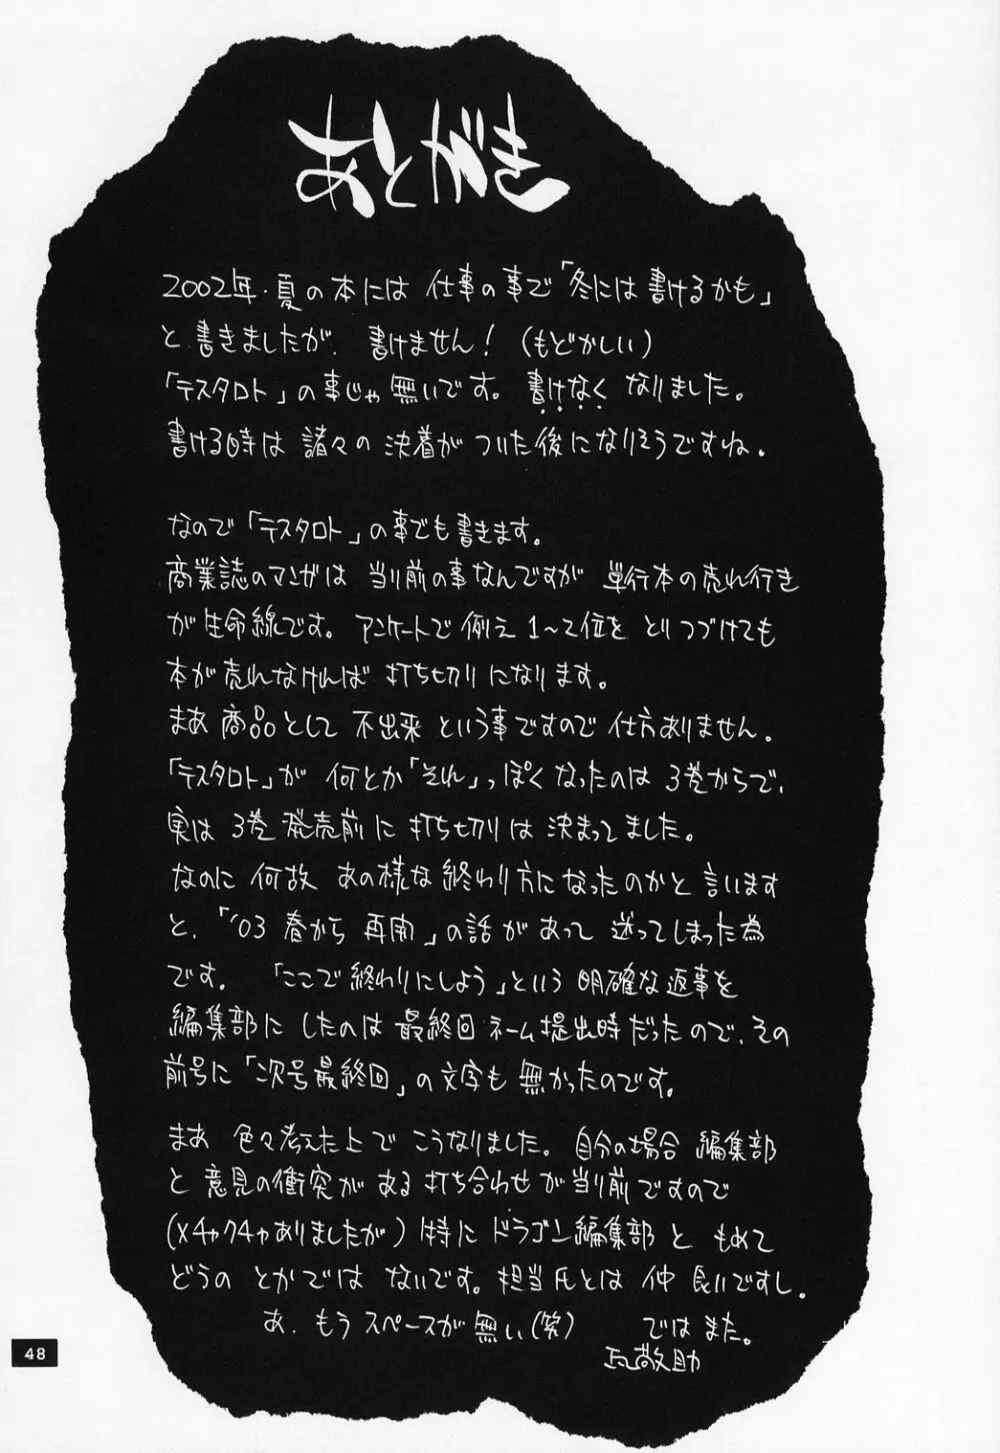 あとがき
2002年・夏の本には 仕事の事で「冬には書けるかも」
と書きましたが、書けません！（もどかしい）
「テスタロト」の事じゃ無いです。書けなく なりました。
書ける時は 諸々の決着が ついた後になりそうですね。
なので「テスタロト」の事でも書きます。
商業誌のマンガは 当り前の事なんですが 単行本の売れ行き
が生命線です。アンケートで例え 1〜2位を とりつづけても
本が売れなければ 打ち切りになります。
まあ商品として 不出来 という事ですので 仕方ありません。
「テスタロト」が 何とか「それ」っぽくなったのは 3巻からで、
実は 3巻 発売前に 打ち切りは 決まってました。
なのに 何故 あの様な終わり方になったのかと 言います
と、「'03 春から 再開」の話があって 迷ってしまった為
です。「ここで終わりにしよう」という 明確な返事を
編集部に したのは 最終回 ネーム提出時だったので、その
前号に「次号最終回」の文字も 無かったのです。
まあ 色々考えた上で こうなりました。自分の場合 編集部
と 意見の衝突が ある 打ち合わせが当り前ですので
（メチャクチャありましたが）特に ドラゴン編集部 と もめて
どうの とかでは ないです。担当氏とは 仲 良いですし。
あ、もう スペースが無い（笑） では また。
三部敬助
48